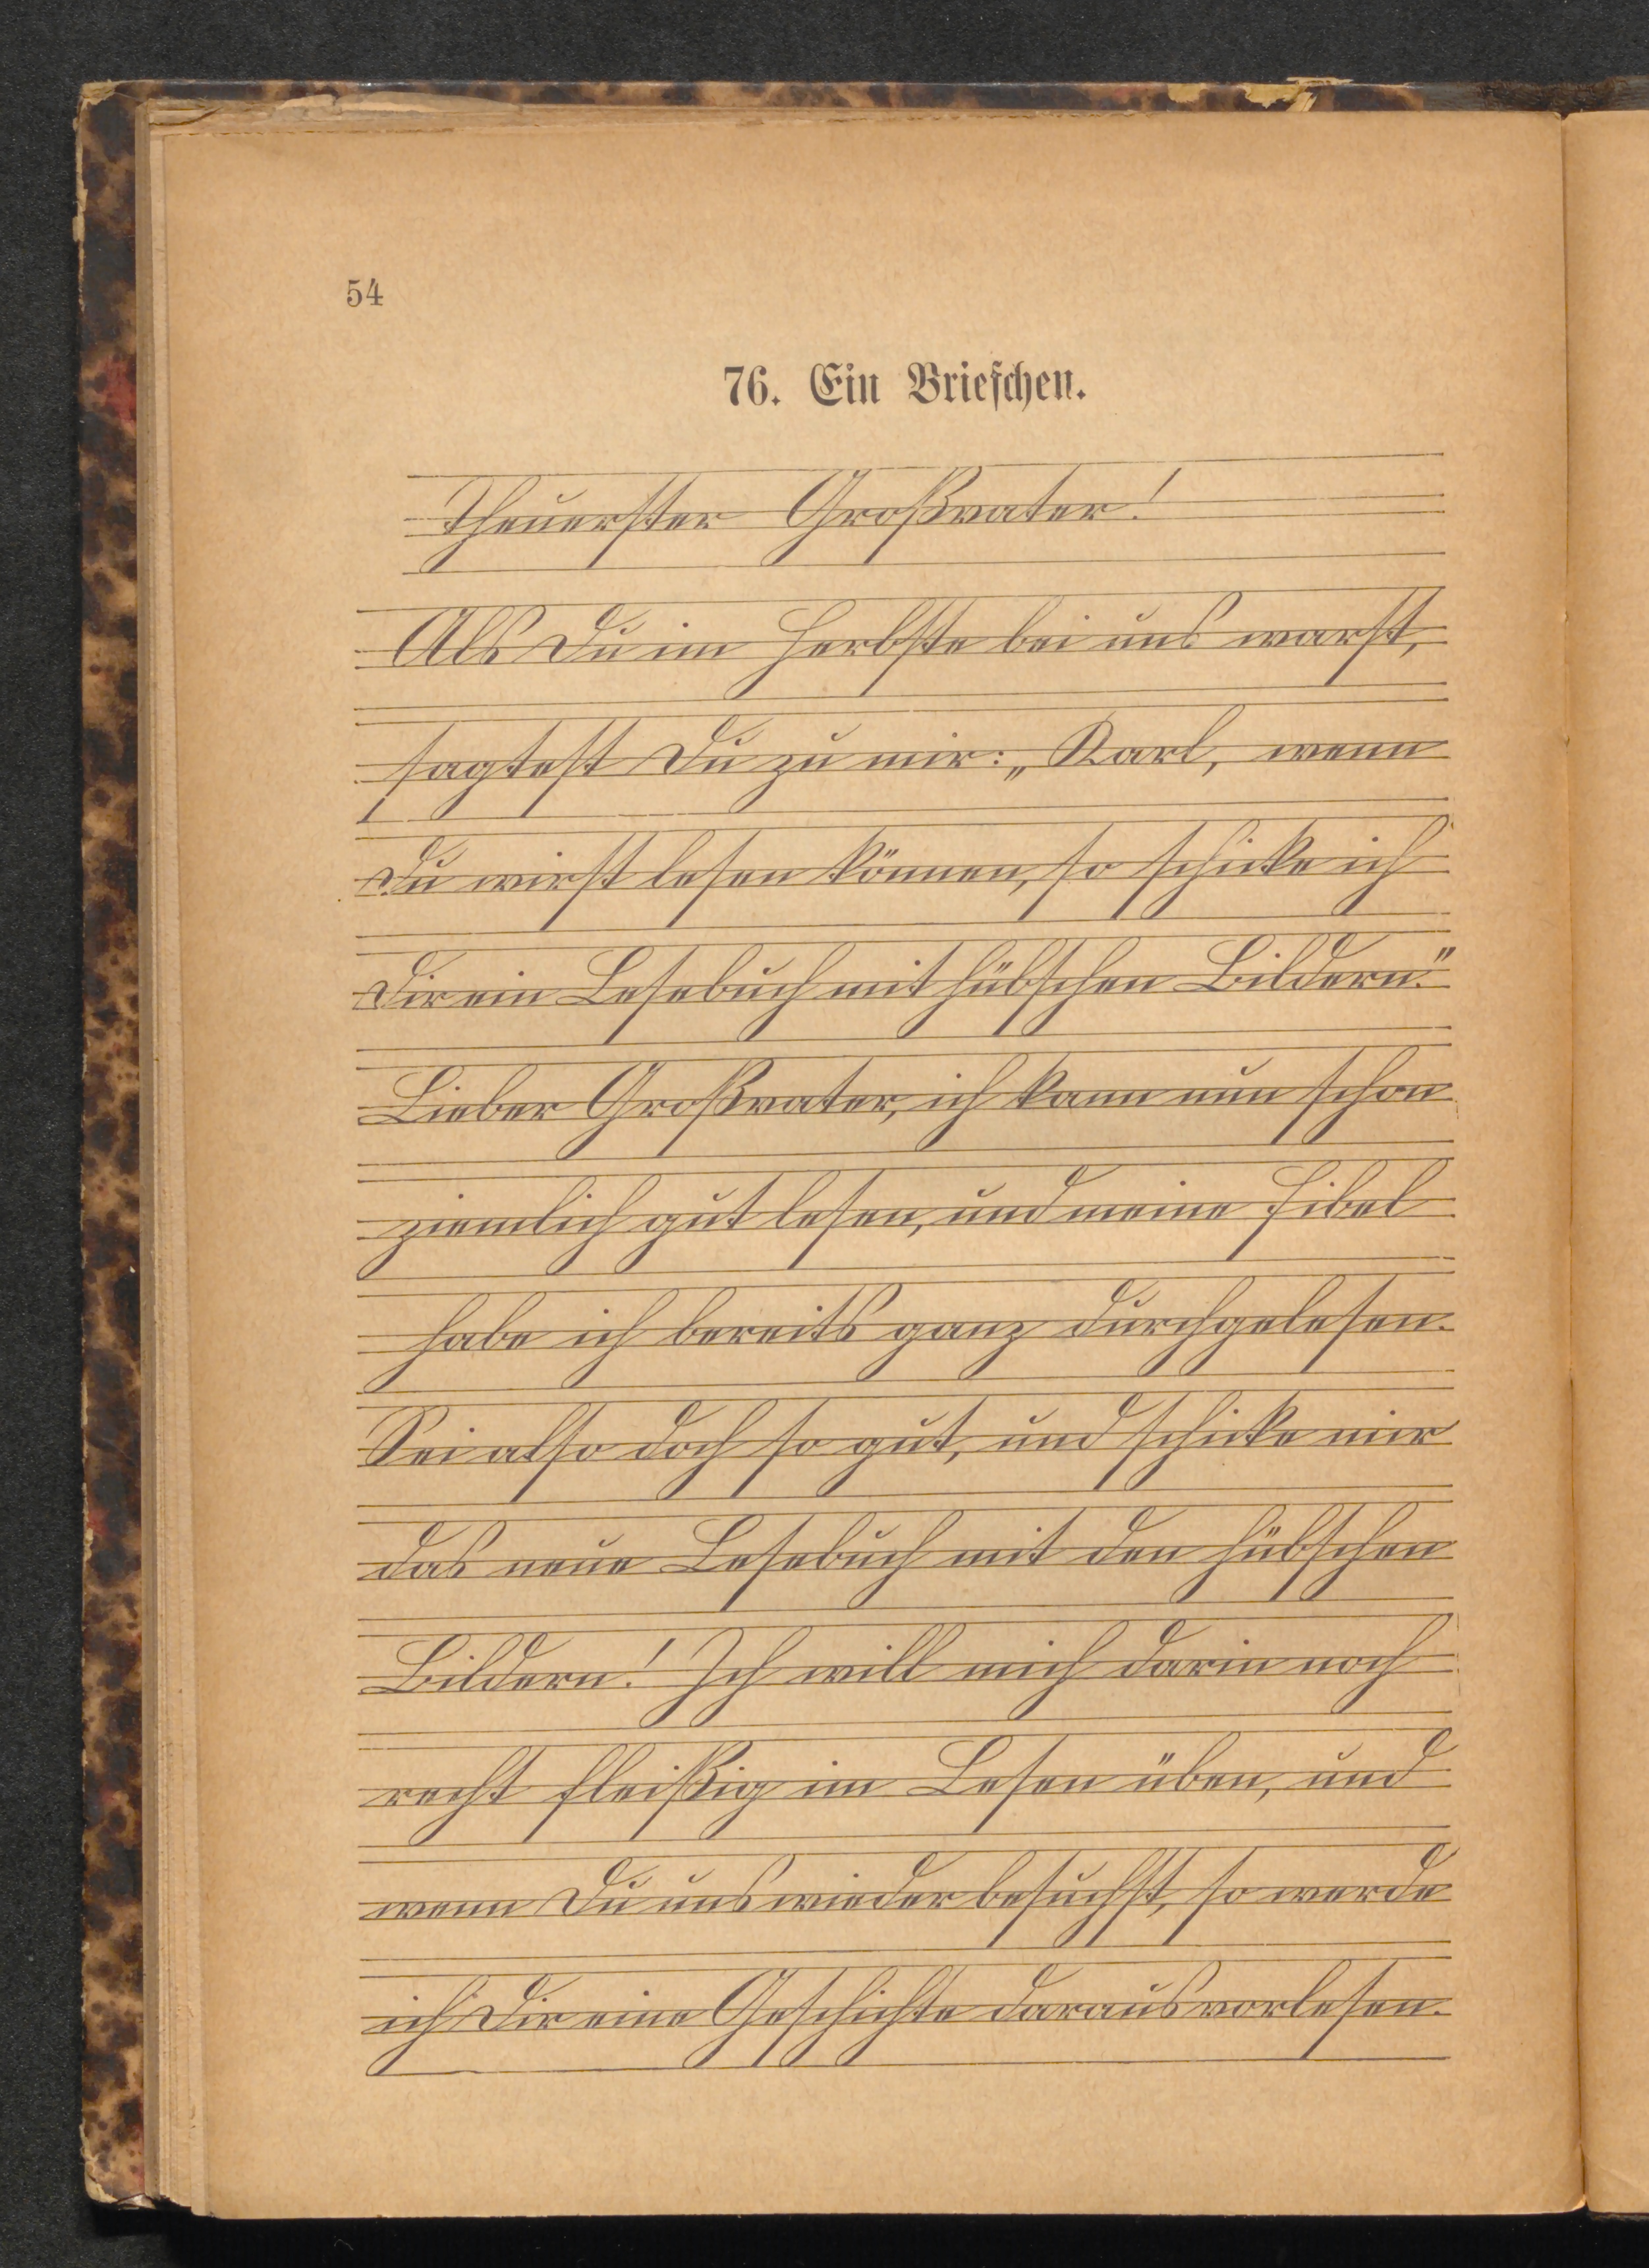 54
76. Ein Briefchen.
Theuerster Großvater!
Als Du im Herbste bei uns warst,
sagtest Du zu mir: „Karl, wenn
Du wirst lesen können, so schicke ich
Dir ein Lesebuch mit hübschen Bildern."
Lieber Großvater, ich kann nun schon
ziemlich gut lesen, und meine Fibel
habe ich bereits ganz durchgelesen.
Sei also doch so gut, und schicke mir
das neue Lesebuch mit den hübschen
Bildern! Ich will mich darin noch
recht fleißig im Lesen üben, und
wenn Du uns wieder besuchst, so werde
ich Dir eine Geschichte daraus vorlesen.